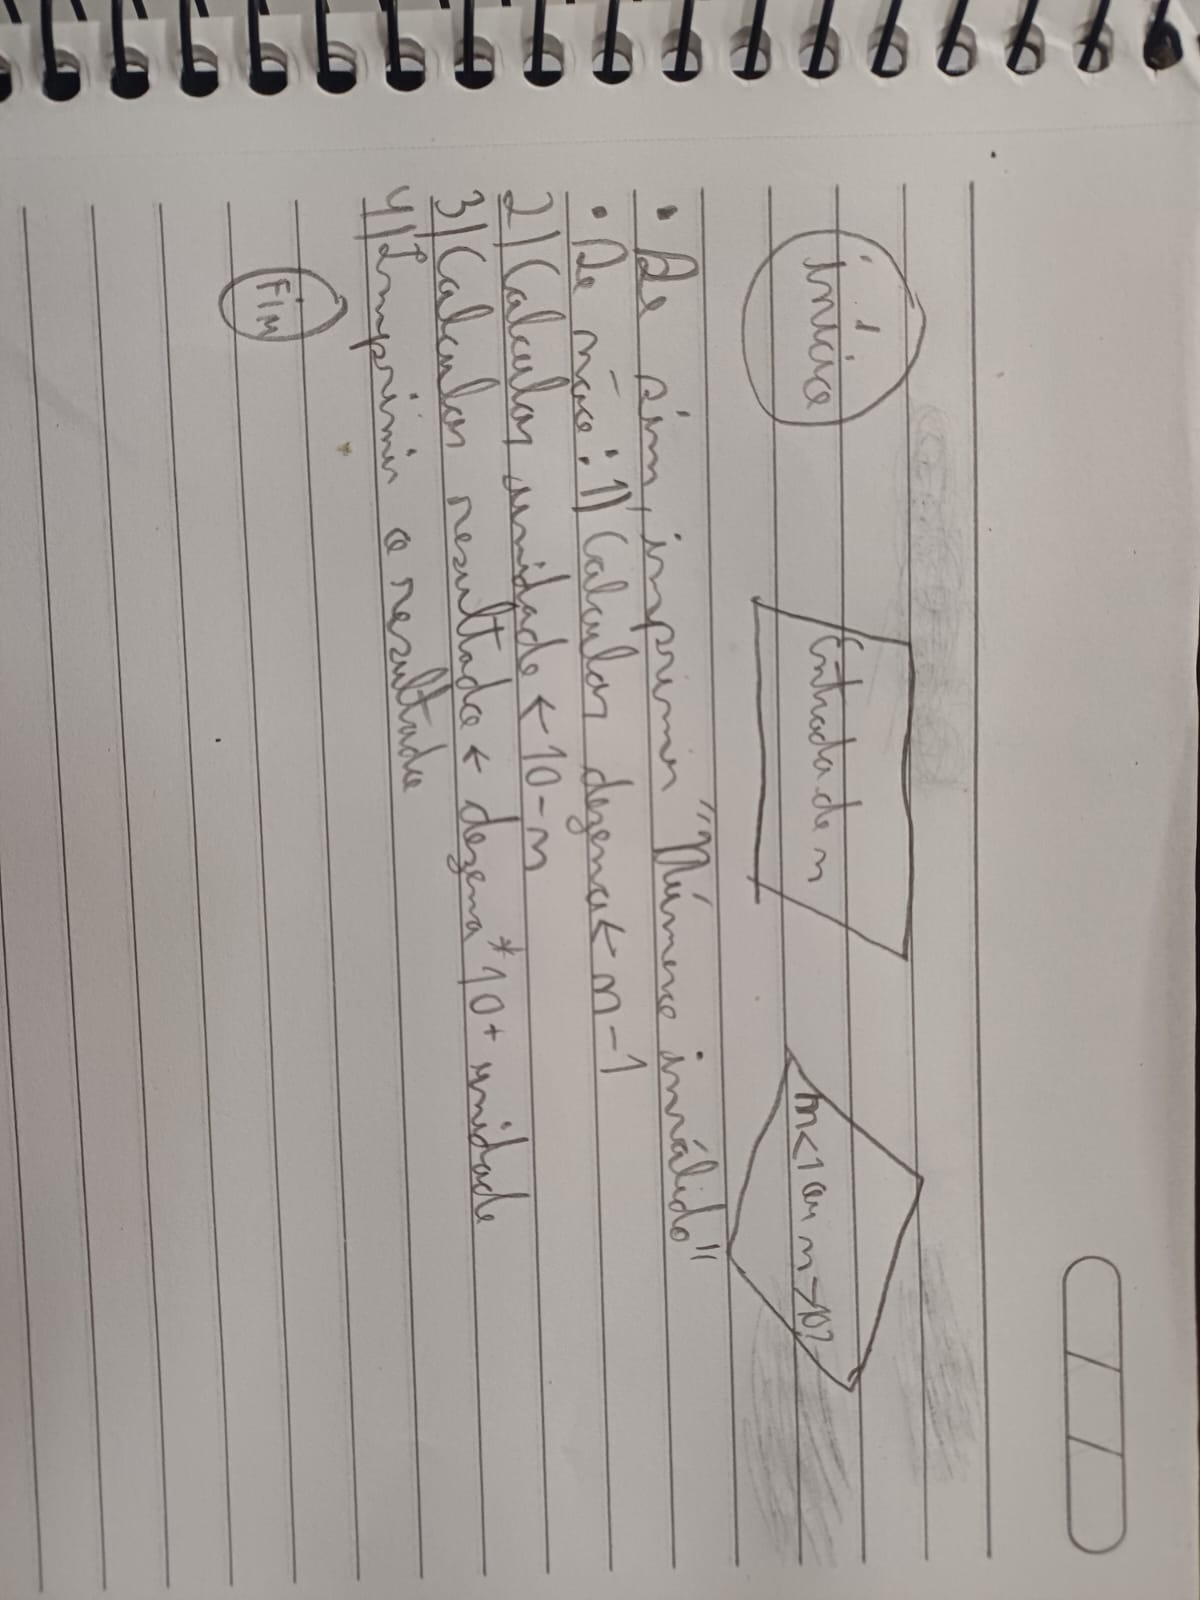 início
Entrada de n
n<1 ou n>10?
• Se sim, imprimir "Número inválido"
• Se não: 1) Calcular dezena ← n-1
2) Calcular unidade ← 10-n
3) Calcular resultado ← dezena * 10 + unidade
4) Imprimir o resultado
Fim